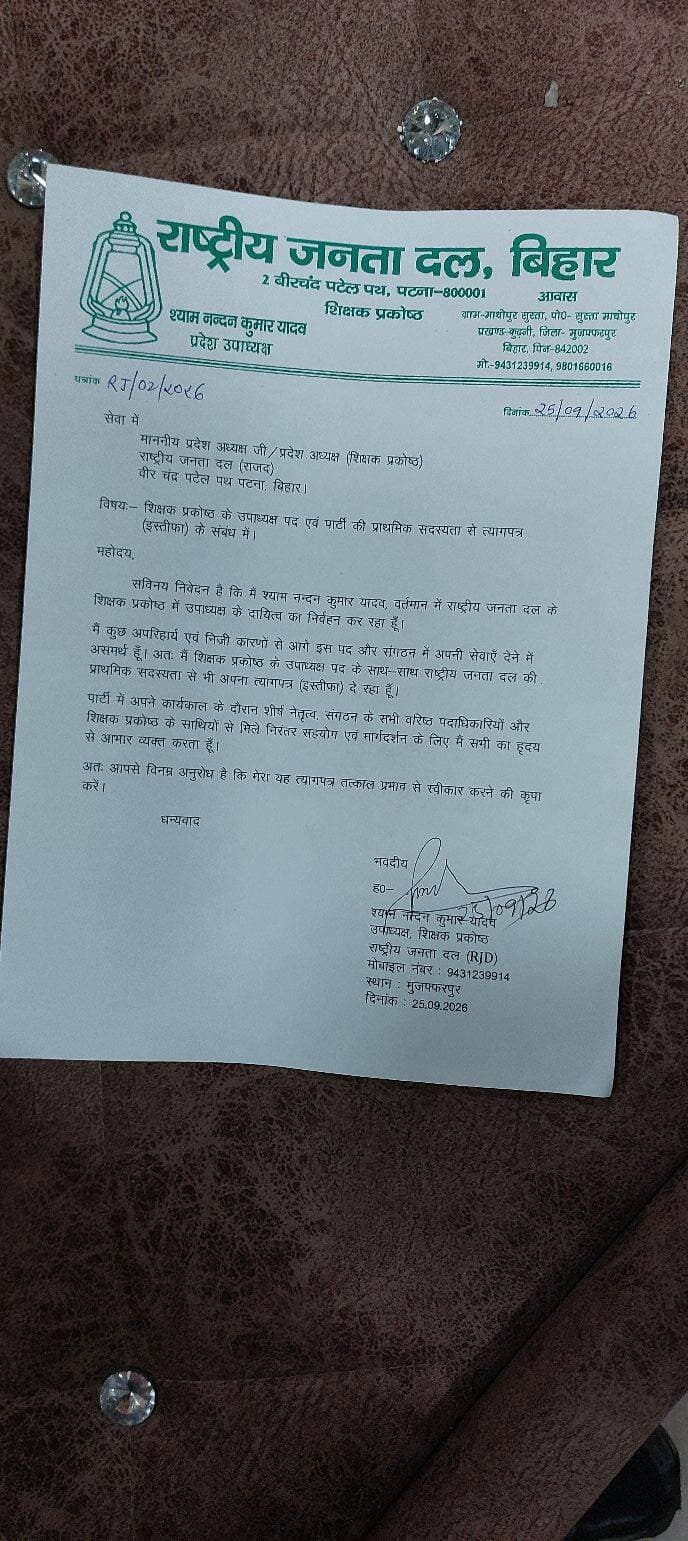 राष्ट्रीय जनता दल, बिहार
2 बीरचंद पटेल पथ, पटना–800001
शिक्षक प्रकोष्ठ
श्याम नन्दन कुमार यादव
प्रदेश उपाध्यक्ष
आवास
ग्राम-माधोपुर सुस्ता, पो0- सुस्ता माधोपुर
प्रखण्ड-कुढ़नी, जिला- मुजफ्फरपुर
बिहार, पिन-842002
मो.-9431239914, 9801660016
पत्रांक RJ/02/2026
दिनांक 25/09/2026
सेवा में
माननीय प्रदेश अध्यक्ष जी/प्रदेश अध्यक्ष (शिक्षक प्रकोष्ठ)
राष्ट्रीय जनता दल (राजद)
वीर चंद्र पटेल पथ पटना, बिहार।
विषयः– शिक्षक प्रकोष्ठ के उपाध्यक्ष पद एवं पार्टी की प्राथमिक सदस्यता से त्यागपत्र
(इस्तीफा) के संबंध में।
महोदय,
सविनय निवेदन है कि मैं श्याम नन्दन कुमार यादव, वर्तमान में राष्ट्रीय जनता दल के
शिक्षक प्रकोष्ठ में उपाध्यक्ष के दायित्व का निर्वहन कर रहा हूँ।
मैं कुछ अपरिहार्य एवं निजी कारणों से आगे इस पद और संगठन में अपनी सेवाएँ देने में
असमर्थ हूँ। अतः मैं शिक्षक प्रकोष्ठ के उपाध्यक्ष पद के साथ-साथ राष्ट्रीय जनता दल की
प्राथमिक सदस्यता से भी अपना त्यागपत्र (इस्तीफा) दे रहा हूँ।
पार्टी में अपने कार्यकाल के दौरान शीर्ष नेतृत्व, संगठन के सभी वरिष्ठ पदाधिकारियों और
शिक्षक प्रकोष्ठ के साथियों से मिले निरंतर सहयोग एवं मार्गदर्शन के लिए मैं सभी का हृदय
से आभार व्यक्त करता हूँ।
अतः आपसे विनम्र अनुरोध है कि मेरा यह त्यागपत्र तत्काल प्रभाव से स्वीकार करने की कृपा
करें।
धन्यवाद
भवदीय
ह0–
25/09/26
श्याम नन्दन कुमार यादव
उपाध्यक्ष, शिक्षक प्रकोष्ठ
राष्ट्रीय जनता दल (RJD)
मोबाइल नंबर : 9431239914
स्थान : मुजफ्फरपुर
दिनांक : 25.09.2026